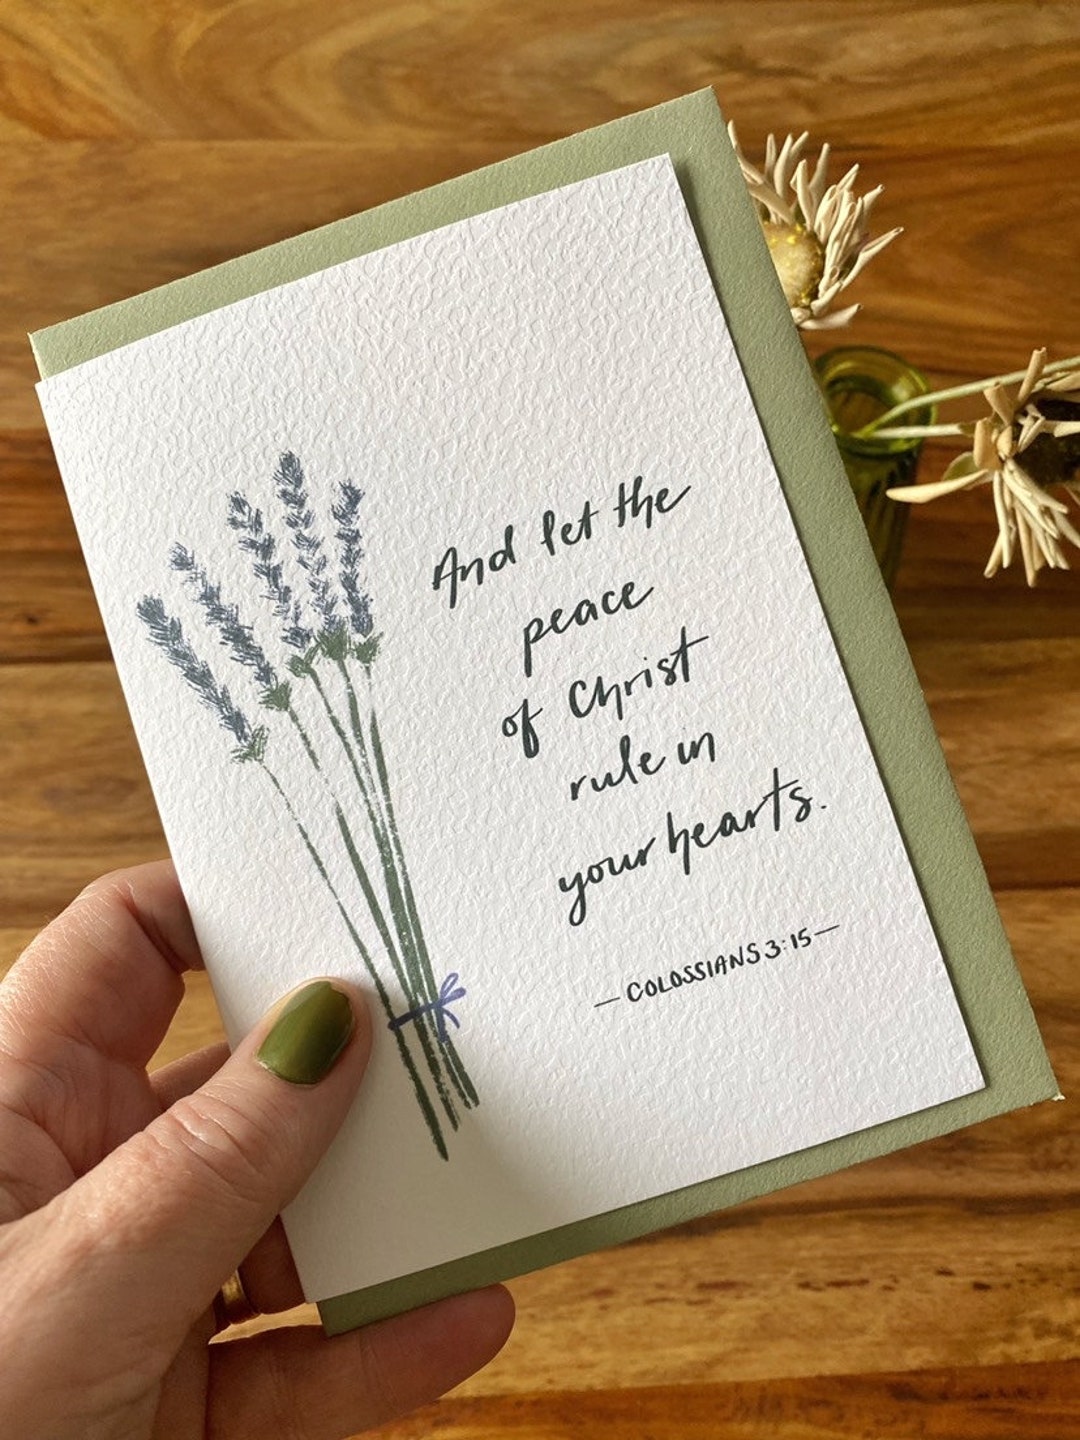 And let the
peace
of Christ
rule in
your hearts.
— COLOSSIANS 3:15 —